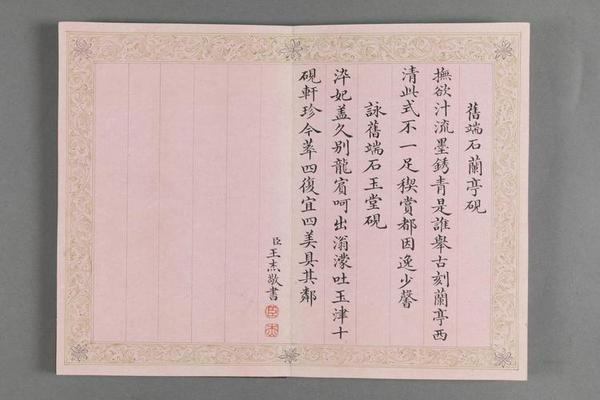 舊端石蘭亭硯
撫欲汁流墨銹青是誰舉古刻蘭亭西
清此式不一足稧賞都因逸少馨
詠舊端石玉堂硯
淬妃盖久別龍賓呵出滃濛吐玉津十
硯軒珍今萃四復宜四美具其鄰
臣王杰敬書